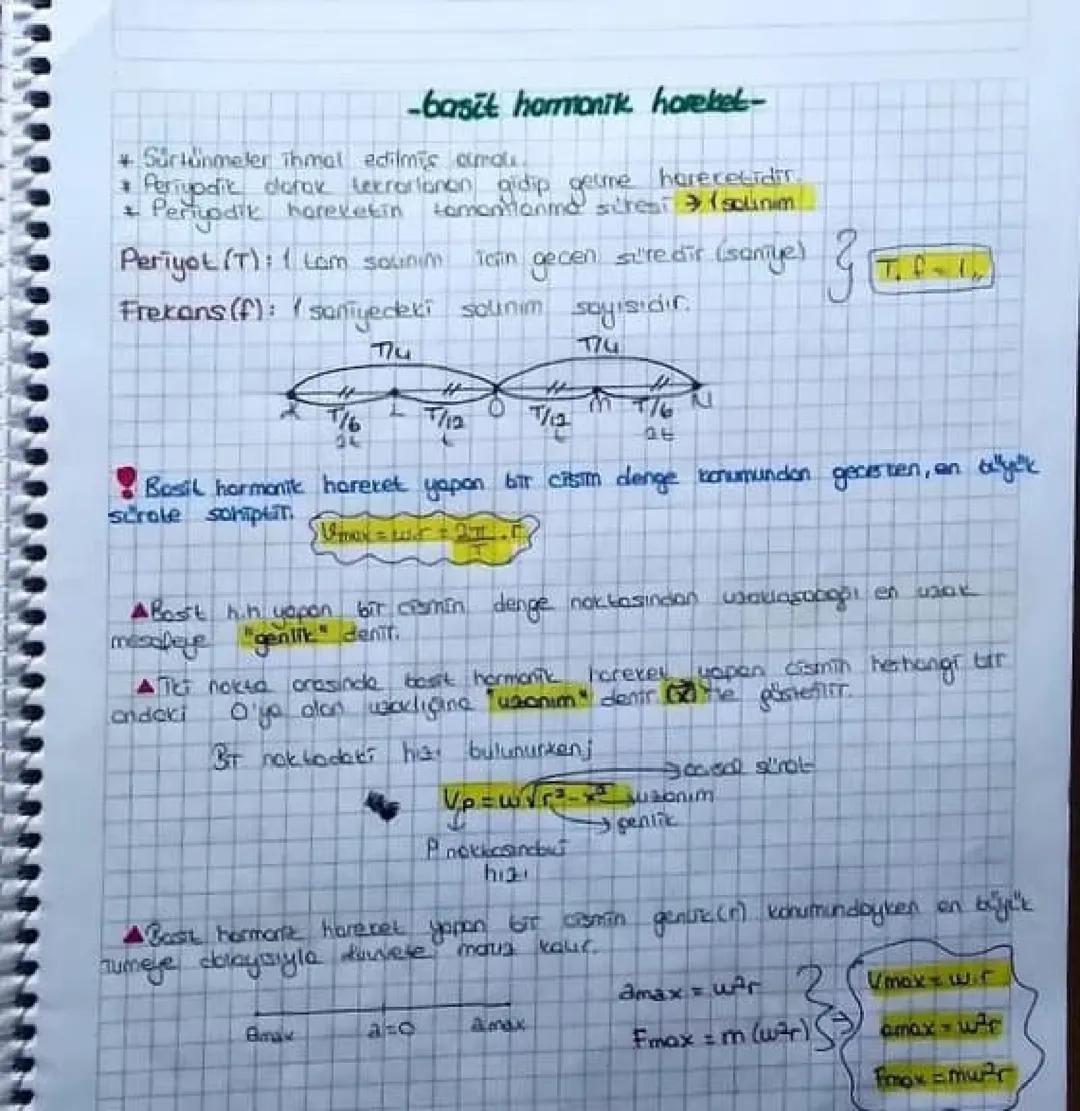 -basit harmonik hareket-
* Sürtünmeler ihmal edilmiş olmalı.
* Periyodik olarak tekrarlanan gidip gelme hareketidir.
* Periyodik hareketin tamamlanma süresi → 1 salınım
Periyot (T): 1 tam salınım için geçen süredir (saniye)
T. f = 1,,
Frekans (f): 1 saniyedeki salınım sayısıdır.
T/4 T/4
K L O M N
T/6 T/12 T/12 T/6
2t t t 2t
! Basit harmonik hareket yapan bir cisim denge konumundan geçerken, en büyük
sürate sahiptir.
Vmax = w.r = 2π/T . r
▲Basit h.h yapan bir cismin denge noktasından uzaklaşabağı en uzak
mesafeye "genlik" denir.
▲İki nokta arasında basit harmonik hareket yapan cismin herhangi bir
andaki O'ya olan uzaklığına "uzanım" denir (x) ile gösterilir.
Bir noktadaki hızı bulunurken;
→ açısal sürat
Vp = w√r² - x² → uzanım
→ genlik
P noktasındaki
hızı
▲Basit harmonik hareket yapan bir cismin genlik(r) konumundayken en büyük
ivmeye dolayısıyla kuvvete maruz kalır.
amax a=0 amax
amax = w²r
Fmax = m (w²r)
Vmax = w.r
amax = w²r
Fmax = mw²r